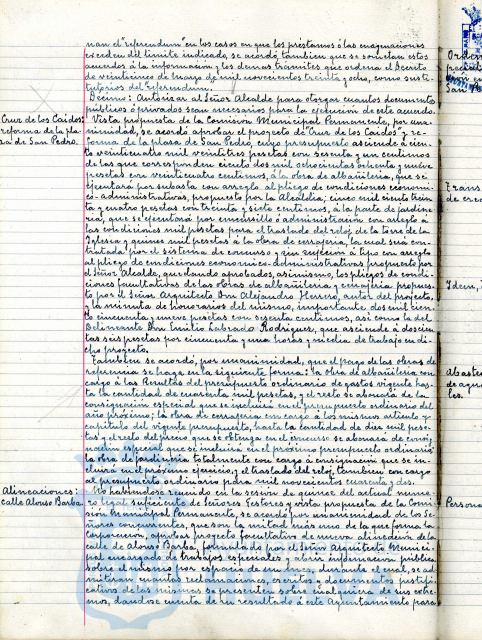 nan el "referendum" en los casos en que los préstamos ó las enagenaciones
excedan del límite indicado, se acordó tambien que se sometan estos
acuerdos á la información y los demás trámites que ordena el Decreto
de veinticinco de marzo de mil novecientos treinta y ocho, como susti-
tutorios del referendum.
Décimo: Autorizar al Señor Alcalde para otorgar cuantos documentos
públicos ó privados sean necesarios para la ejecución de este acuerdo.
Cruz de los Caidos:
reforma de la pla-
za de San Pedro.
Vista propuesta de la Comisión Municipal Permanente, por una-
nimidad, se acordó aprobar el proyecto de "Cruz de los Caidos" y re-
forma de la plaza de San Pedro, cuyo presupuesto asciende á cien-
to veinticuatro mil veintitres pesetas con sesenta y un centimos
de las que corresponden ciento dos mil ochocientas ochenta y nueve
pesetas con veinticuatro centimos, á la obra de albañileria, que se
ejecutará por subasta con arreglo al pliego de condiciones economi-
co-administrativas propuesto por la Alcaldía; cinco mil ciento trein-
ta y cuatro pesetas con treinta y siete centimos, á la parte de jardine-
ria, que se ejecutará por administración con arreglo a
las condiciones mil pesetas para el traslado del reloj de la torre de la
Iglesia y quince mil pesetas á la obra de cerrajeria, la cual será con-
tratada por el sistema de concurso y sin sujeción á tipo con arreglo
al pliego de condiciones economico-administrativas propuesto por
el Señor Alcalde, quedando aprobados, asimismo, los pliegos de condi-
ciones facultativas de las obras de albañileria y cerrajeria propues-
to por el Señor Arquitecto Don Alejandro Herrero, autor del proyecto,
y la minuta de honorarios del mismo, importante dos mil cien-
to cincuenta y nueve pesetas con setenta centimos, así como la del
Delineante Don Emilio Labrado Rodriguez, que asciende á doscien-
tas seis pesetas por cincuenta y una horas y media de trabajo en di-
cho proyecto.
Tambien se acordó, por unanimidad, que el pago de las obras de
referencia se haga en la siguiente forma: la obra de albañileria con
cargo á las Resultas del presupuesto ordinario de gastos vigente has-
ta la cantidad de cuarenta mil pesetas, y el resto se abonará de la
consignación especial que se incluirá en el presupuesto ordinario del
año próximo; la obra de cerrajeria con cargo á los mismos articulo y
capitulo del vigente presupuesto, hasta la cantidad de diez mil pese-
tas y el resto del precio que se obtenga en el concurso se abonará de consig-
nación especial que se incluirá en el próximo presupuesto ordinario;
la obra de jardineria totalmente con cargo á consignación que se in-
cluirá en el próximo ejercicio, y el traslado del reloj, tambien con cargo
al presupuesto ordinario para mil novecientos cuarenta y dos.
Alineaciones:
calle Alonso Barba.
No habiendose reunido en la sesion de quince del actual nume-
ro legal suficiente de Señores Gestores y vista propuesta de la Comi-
sión Municipal Permanente, se acordó por unanimidad de los Se-
ñores concurrentes, que son la mitad más uno de la que forma la
Corporación, aprobar proyecto facultativo de nueva alineación de la
calle de Alonso Barba, formulado por el Señor Arquitecto Munici-
pal encargado de trabajos especiales y abrir información pública
sobre el mismo por espacio de un mes, durante el cual, se ad-
mitirán cuantas reclamaciones, escritos y documentos justifi-
cativos de las mismas se presenten sobre cualquiera de sus extre-
mos, dandose cuenta de su resultado á este Ayuntamiento para
Trans
de cre
Idem,
Abaste
de agua
les.
Persona